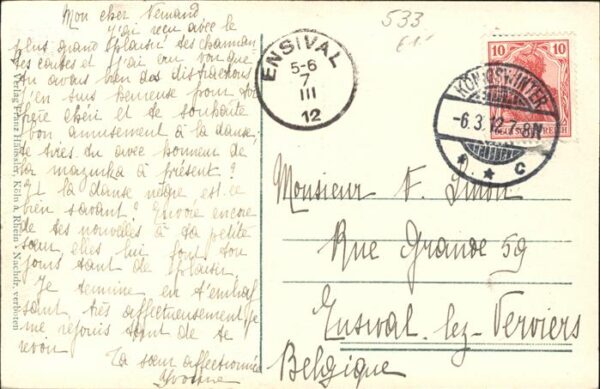 Mon cher Fernand
J'ai reçu avec le
plus grand plaisir tes charman
tes cartes et j'ai cru voir que
tu avais bien des distractions
j'en suis heureuse pour toi
cher et te souhaite
bon amusement à la danse,
tu avec honneur de
la mazurka à présent?
Et la danse nègre est-ce
bien savant? Envoie encore
de tes nouvelles à ta petite
sœur elles lui font tou
jours tant de plaisir.
Je termine en t'embras
sant très affectueusement je
me réjouis tant de te
revoir
Ta sœur affectionnée
Yvonne
Verlag Franz Haussler, Köln a. Rhein - Nachdr. verboten
533
ENSIVAL
5-6
7
III
12
10 10
KÖNIGSWINTER
-6.3.12.7-8N
* * c
Monsieur F. Simon
Rue Grande 59
Ensival-lez-Verviers
Belgique